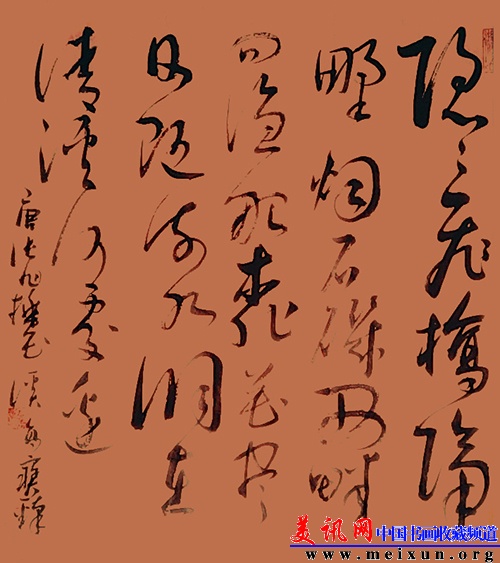 隐々飛橋隔
野烟石磯西畔
問漁船桃花尽
日随流水洞在
清溪何處邊
唐张旭桃花溪
美讯网中国书画收藏频道
www.meixun.org